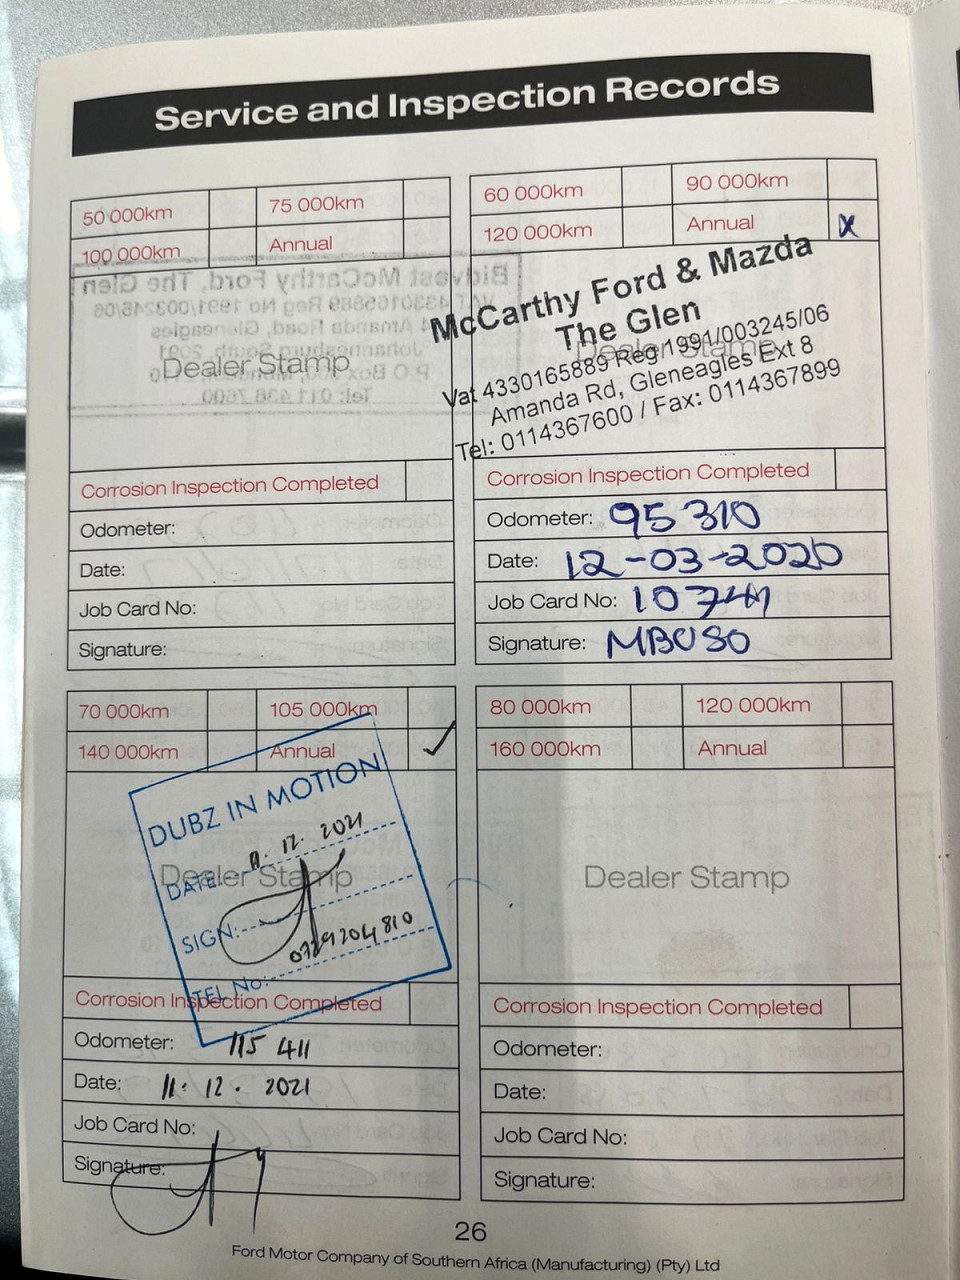 Service and Inspection Records
50 000km 75 000km
100 000km Annual
Dealer Stamp
Corrosion Inspection Completed
Odometer:
Date:
Job Card No:
Signature:
60 000km 90 000km
120 000km Annual x
McCarthy Ford & Mazda
The Glen
Dealer Stamp
Vat 4330165889 Reg 1991/003245/06
Amanda Rd, Gleneagles Ext 8
Tel: 0114367600 / Fax: 0114367899
Corrosion Inspection Completed
Odometer: 95310
Date: 12-03-2020
Job Card No: 10741
Signature: MBUSO
70 000km 105 000km
140 000km Annual ✓
DUBZ IN MOTION
DATE: 11. 12. 2021
Dealer Stamp
SIGN:
TEL No: 0729204810
Corrosion Inspection Completed
Odometer: 115 411
Date: 11. 12. 2021
Job Card No:
Signature:
80 000km 120 000km
160 000km Annual
Dealer Stamp
Corrosion Inspection Completed
Odometer:
Date:
Job Card No:
Signature:
26
Ford Motor Company of Southern Africa (Manufacturing) (Pty) Ltd